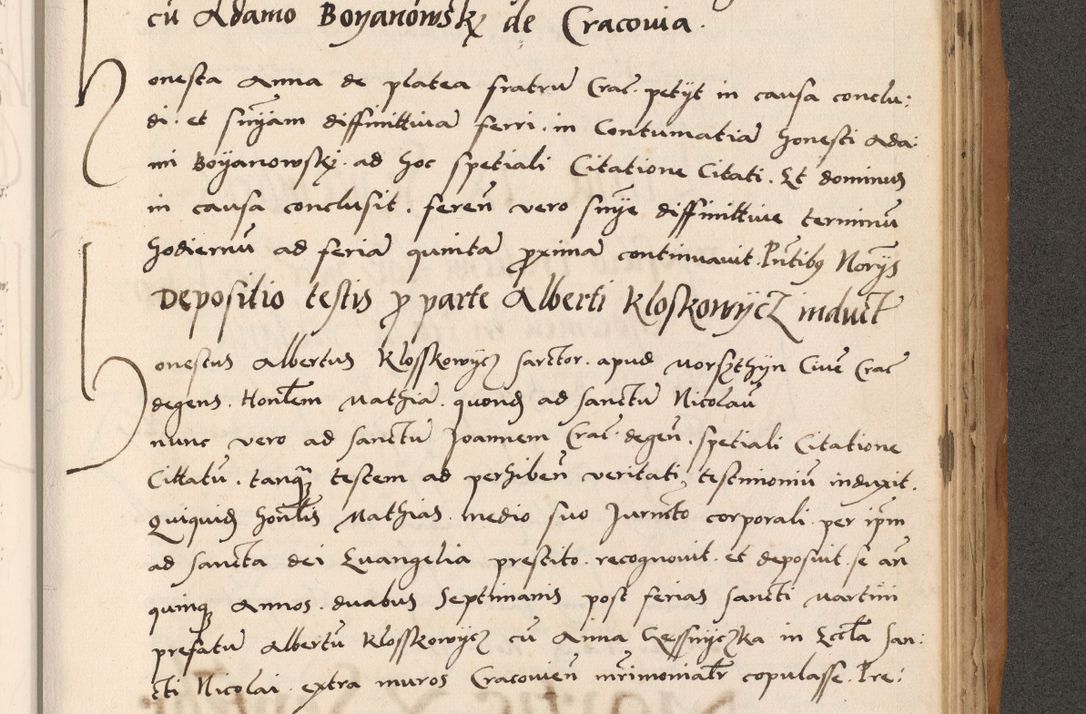 cū Adamo Boyanowskÿ de Cracovia.
Honesta Anna de platea fratrū Crac. petijt in causa conclu:
di. et snÿam diffinittiuā ferri. in Contumatiā honesti Ada:
mi Boÿanowskÿ. ad hoc spetiali Citatione Citati. Et dominus
in causa conclusit. feren̄ vero snÿe diffinittiue terminū
hodiernū ad feriā quintā proximā continuavit. Pn̄tibus Nor̄ÿs
Depositio testis pro parte Alberti Kloskowÿcz induct
Honestus Albertus Klosskowÿcz sarctor. apud Vorszthÿn Ciuē Crac
degens. Honlem Mathiā. quondā ad sanctū Nicolaū
nunc vero ad sanctū Joannem Crac. degen̄. spetiali Citatione
Cittatū. tanquā testem ad perhiben̄ veritati testimoniū induxit.
Quiquidē honlis Mathias. medio suo Jurm̄to corporali. per ip̄m
ad sancta dei Euangelia prestito. recognovit. et deposuit. se an̄
quinque Annos. duabus Septimanis post ferias sancti Martini
prefatū Albertū Klosskowÿcz cū Anna Gessnÿczka in Eccl̄a san:
cti Nicolai. extra muros Cracovien̄ mr̄imonialr̄ copulasse. Pre: